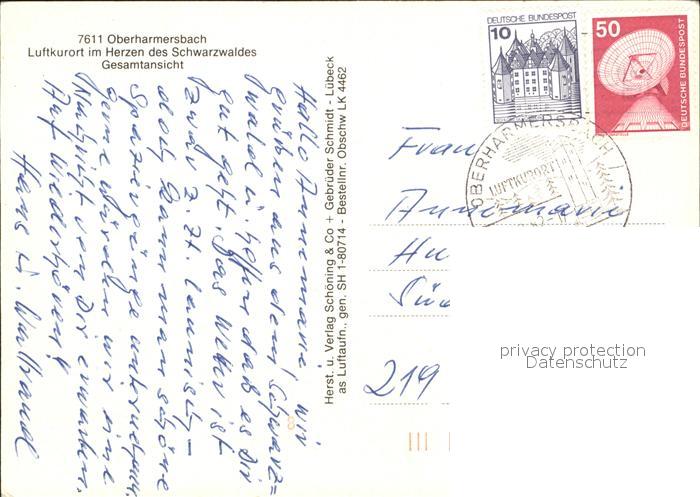 7611 Oberharmersbach
Luftkurort im Herzen des Schwarzwaldes
Gesamtansicht
Hallo Annemarie, wir
grüßen aus dem Schwarz=
wald u. hoffen daß es Dir
gut geht. Das Wetter ist
zwar z. Zt. launisch –
doch kann man schöne
Spaziergänge unternehmen.
Gerne würden wir eine
Nachricht von Dir erwarten.
Auf Wiederhören!
Hans u. Waltraud
Herst. u. Verlag Schöning & Co + Gebrüder Schmidt - Lübeck
as Luftaufn., gen. SH 1-80714 - Bestellnr. Obschw LK 4462
DEUTSCHE BUNDESPOST
10
50
DEUTSCHE BUNDESPOST
OBERHARMERSBACH
LUFTKURORT
Frau
Annemarie
219
privacy protection
Datenschutz